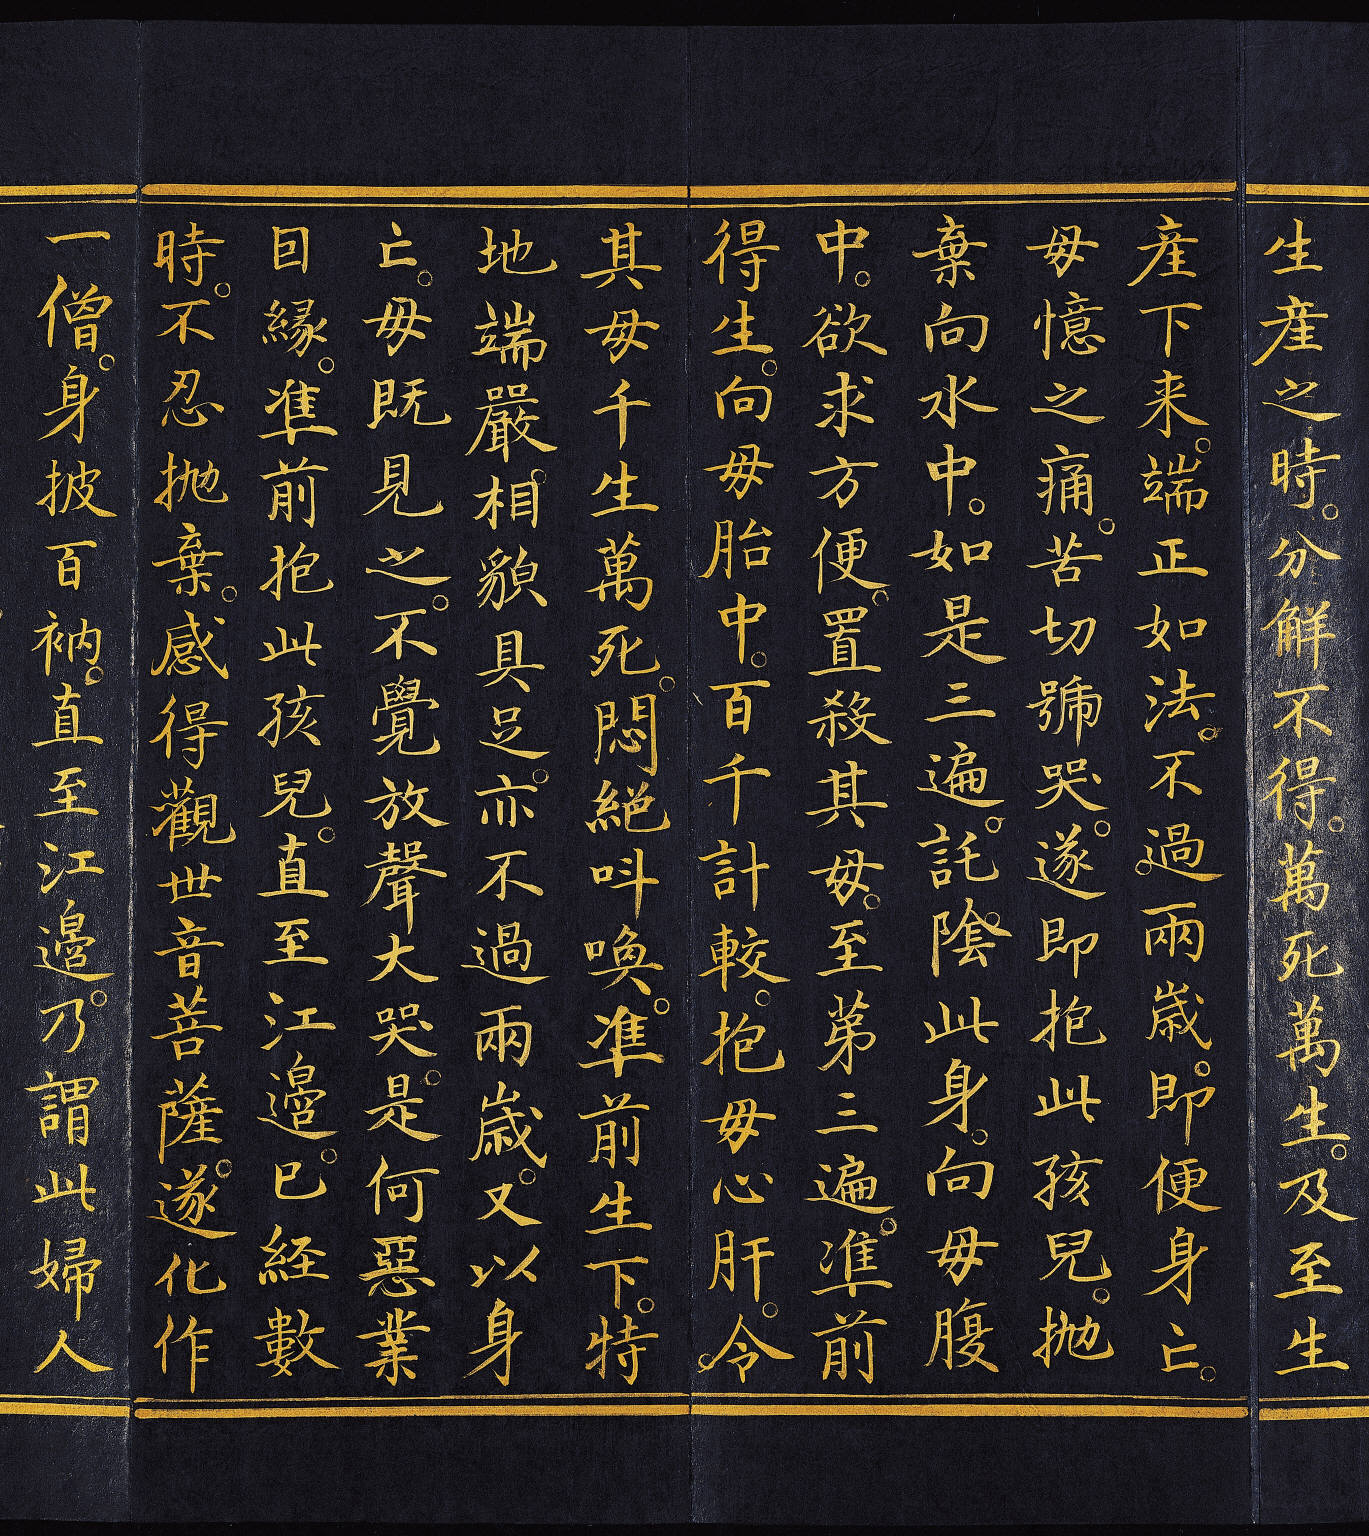 生産之時。分解不得。萬死萬生。及至生
産下来。端正如法。不過兩歳。即便身亡。
毋憶之痛。苦切號哭。遂即抱此孩兒。抛
棄向水中。如是三遍。託陰此身。向毋腹
中。欲求方便。置殺其毋。至第三遍。準前
得生。向毋胎中。百千計較。抱毋心肝。令
其毋千生萬死。悶絕呌喚。準前生下。特
地端嚴。相貌具足。亦不過兩歳。又以身
亡。毋既見之。不覺放聲大哭。是何惡業
因緣。準前抱此孩兒。直至江邊。已経數
時。不忍抛棄。感得觀世音菩薩。遂化作
一僧。身披百衲。直至江邊。乃謂此婦人